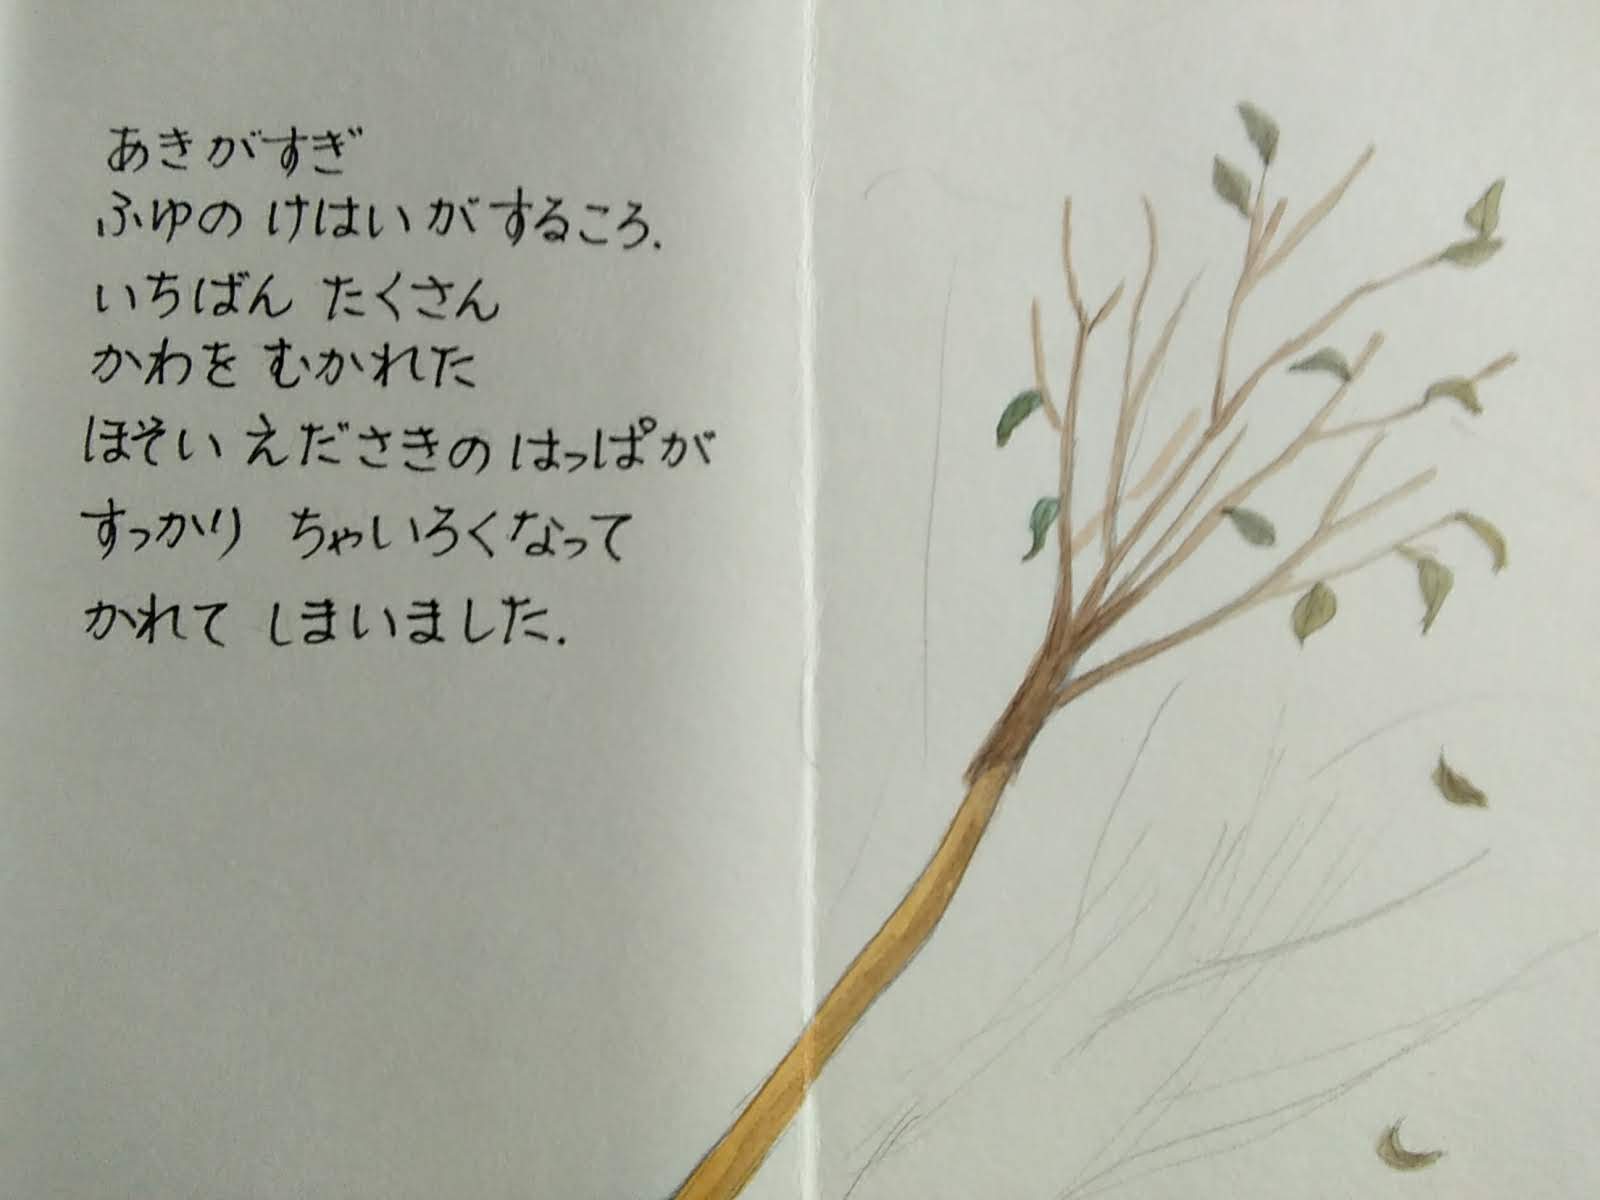 あきがすぎ
ふゆの けはいがするころ.
いちばん たくさん
かわを むかれた
ほそい えださきの はっぱが
すっかり ちゃいろくなって
かれて しまいました.